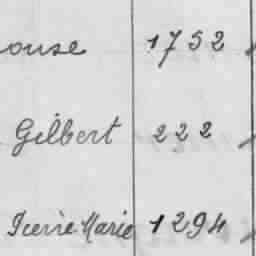 ouse 1752
Gilbert 222
Pierre Marie 1294